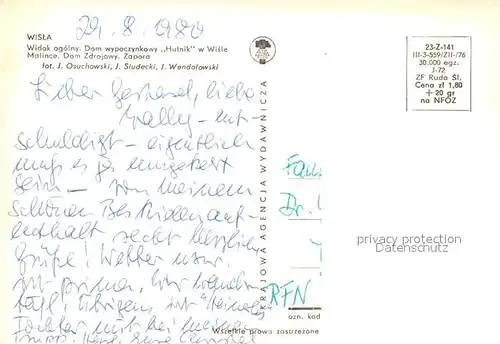 29.8.1980
WISŁA
Widok ogólny. Dom wypoczynkowy „Hutnik" w Wiśle
Malince. Dom Zdrojowy. Zapora
fot. J. Osuchowski, J. Siudecki, J. Wendołowski
23-Z-141
III-3-559/ZII-/76
30.000 egz.
J-72
ZF Ruda Śl.
Cena zł 1,80
+ 20 gr
na NFOZ
KRAJOWA AGENCJA WYDAWNICZA
Lieber Gerhard, liebe
Wally - ent-
schuldigt - eigentlich
muß es ja umgekehrt
sein - von meinem
schönen Beskidenauf-
enthalt recht herzliche
Grüße! Wetter usw.
ist prima, wir wandern
tägl. Übrigens ist
Tochter mit bei meiner
Fam
Dr.
RFN
ozn. kod
Wszelkie prawa zastrzeżone
privacy protection
Datenschutz